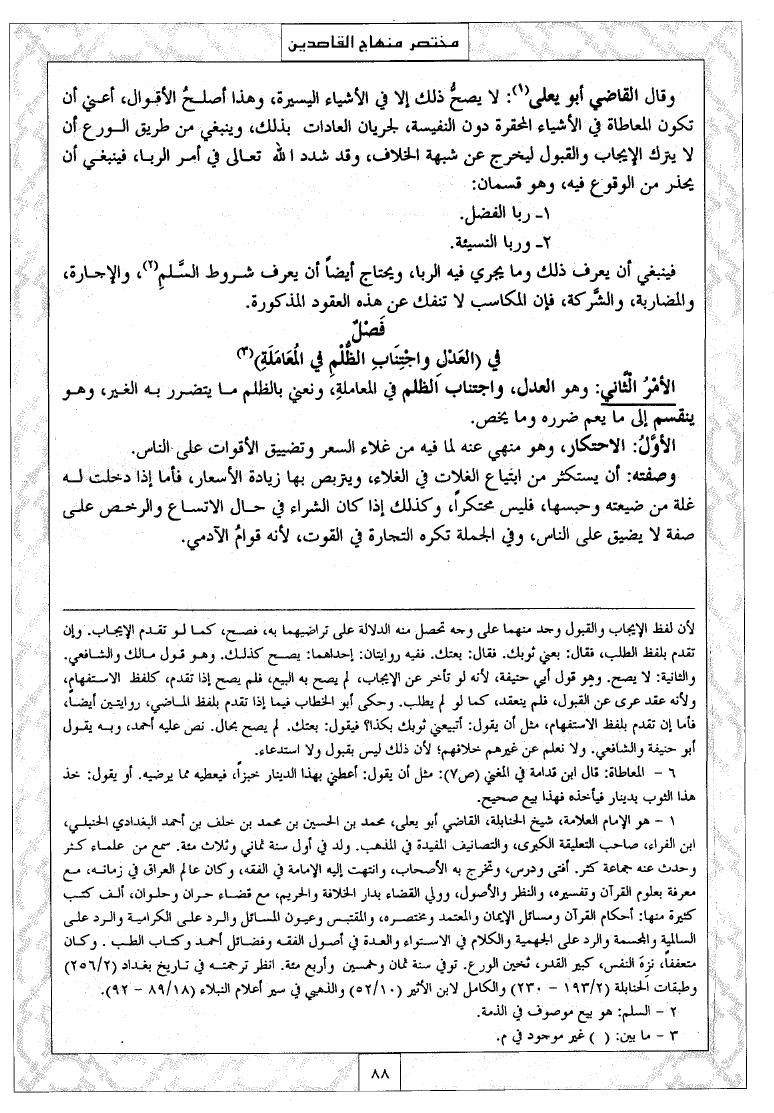 مختصر منهاج القاصدين
وقال القاضي أبو يعلى(١): لا يصحُّ ذلك إلا في الأشياء اليسيرة، وهذا أصلحُ الأقوال، أعني أن
تكون المعاطاة في الأشياء المحقرة دون النفيسة، لجريان العادات بذلك، وينبغي من طريق الورع أن
لا يترك الإيجاب والقبول ليخرج عن شبهة الخلاف، وقد شدد الله تعالى في أمر الربا، فينبغي أن
يحذر من الوقوع فيه، وهو قسمان:
١ـ ربا الفضل.
٢ـ وربا النسيئة.
فينبغي أن يعرف ذلك وما يجري فيه الربا، ويحتاج أيضاً أن يعرف شروط السَّلمِ(٢)، والإجارة،
والمضاربة، والشَّركة، فإن المكاسب لا تنفك عن هذه العقود المذكورة.
فَصْلٌ
في (العَدْلِ واجْتِنَابِ الظُّلْمِ في الُمعَامَلَةِ)(٣)
الأمْرُ الْثَّاني: وهو العدل، واجتناب الظلم في المعاملةِ، ونعني بالظلم ما يتضرر به الغير، وهو
ينقسم إلى ما يعم ضرره وما يخص.
الأوَّلُ: الاحتكار، وهو منهي عنه لما فيه من غلاء السعر وتضييق الأقوات على الناس.
وصفته: أن يستكثر من ابتياع الغلات في الغلاء، ويتربص بها زيادة الأسعار، فأما إذا دخلت له
غلة من ضيعته وحبسها، فليس محتكراً، وكذلك إذا كان الشراء في حال الاتساع والرخص على
صفة لا يضيق على الناس، وفي الجملة تكره التجارة في القوت، لأنه قوامُ الآدمي.
لأن لفظ الإيجاب والقبول وجد منهما على وجه تحصل منه الدلالة على تراضيهما به، فصح، كما لو تقدم الإيجاب. وإن
تقدم بلفظ الطلب، فقال: بعني ثوبك. فقال: بعتك. ففيه روايتان: إحداهما: يصح كذلك. وهو قول مالك والشافعي.
والثانية: لا يصح. وهو قول أبي حنيفة، لأنه لو تأخر عن الإيجاب، لم يصح به البيع، فلم يصح إذا تقدم، كلفظ الاستفهام،
ولأنه عقد عرى عن القبول، فلم ينعقد، كما لو لم يطلب. وحكى أبو الخطاب فيما إذا تقدم بلفظ الماضي، روايتين أيضاً،
فأما إن تقدم بلفظ الاستفهام، مثل أن يقول: أتبيعني ثوبك بكذا؟ فيقول: بعتك. لم يصح بحال. نص عليه أحمد، وبه يقول
أبو حنيفة والشافعي. ولا نعلم عن غيرهم خلافهم؛ لأن ذلك ليس بقبول ولا استدعاء.
٦ - المعاطاة: قال ابن قدامة في المغني (ص٧): مثل أن يقول: أعطني بهذا الدينار خبزاً، فيعطيه مما يرضيه. أو يقول: خذ
هذا الثوب بدينار فيأخذه فهذا بيع صحيح.
١ - هو الإمام العلامة، شيخ الحنابلة، القاضي أبو يعلى، محمد بن الحسين بن محمد بن خلف بن أحمد البغدادي الحنبلي،
ابن الفراء، صاحب التعليقة الكبرى، والتصانيف المفيدة في المذهب. ولد في أول سنة ثماني وثلاث مئة. سمع من علماء كثر
وحدث عنه جماعة كثر. أفتى ودرس، وتخرج به الأصحاب، وانتهت إليه الإمامة في الفقه، وكان عالم العراق في زمانه، مع
معرفة بعلوم القرآن وتفسيره، والنظر والأصول، وولي القضاء بدار الخلافة والحريم، مع قضاء حران وحلوان، ألف كتب
كثيرة منها: أحكام القرآن ومسائل الإيمان والمعتمد ومختصره، والمقتبس وعيون المسائل والرد على الكرامية والرد على
السالمية والمجسمة والرد على الجهمية والكلام في الاستواء والعدة في أصول الفقه وفضائل أحمد وكتاب الطب . وكان
متعففاً، نزهَ النفس، كبير القدر، ثخين الورع. توفي سنة ثمان وخمسين وأربع مئة. انظر ترجمته في تاريخ بغداد (٢٥٦/٢)
وطبقات الحنابلة (١٩٣/٢ - ٢٣٠) والكامل لابن الأثير (٥٢/١٠) والذهبي في سير أعلام النبلاء (٨٩/١٨ - ٩٢).
٢ - السلم: هو بيع موصوف في الذمة.
٣ - ما بين: ( ) غير موجود في م.
٨٨